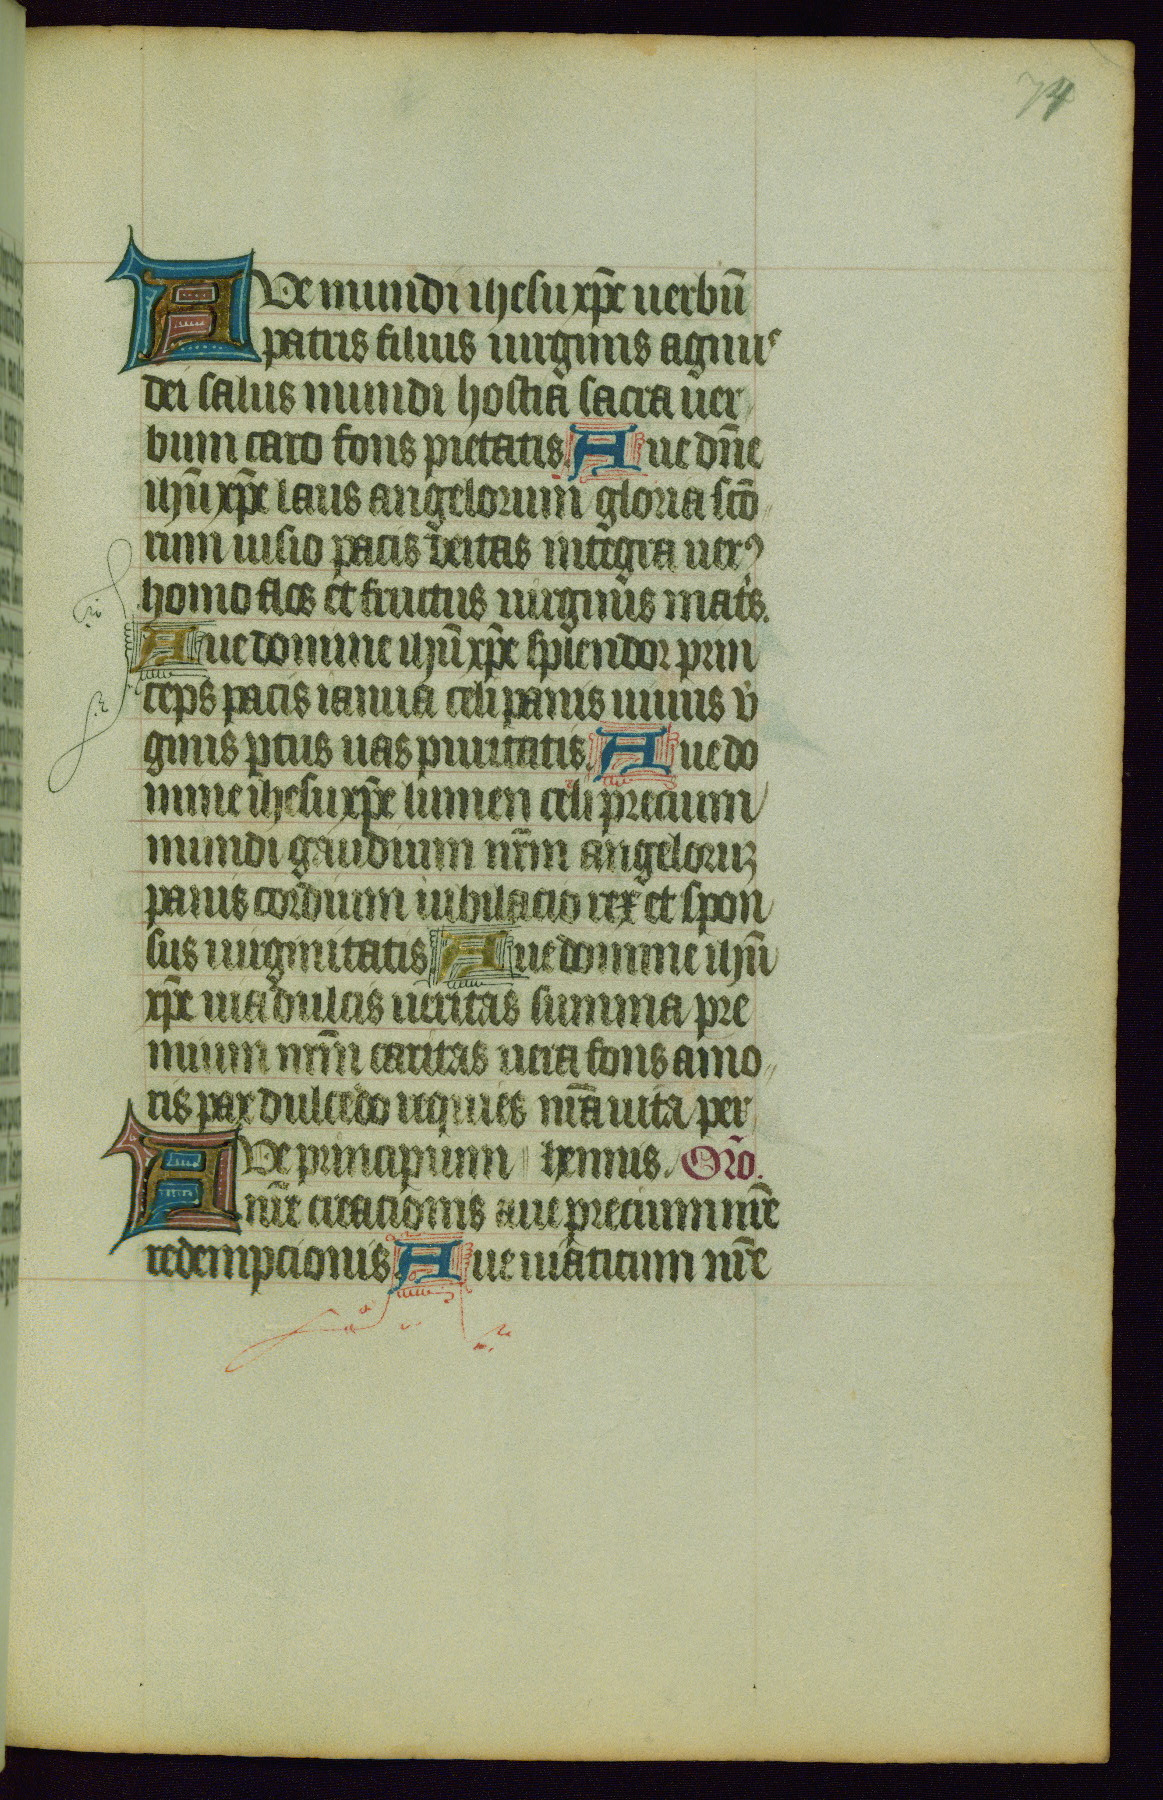 74
AVe mundi ihesu xp̄e uerbū
patris filius uirginis agnus
dei salus mundi hostia sacra uer
bum caro fons pietatis. Aue dn̄e
ihū xp̄e laus angelorum gloria scō
rum uisio pacis deitas integra uerꝰ
homo flos et fructus uirginis mat̄s.
Aue domine ihū xp̄e splendor prin
ceps pacis ianua celi panis uiuus v̄
ginis ptus uas puritatis. Aue do
mine ihesu xp̄e lumen celi precium
mundi gaudium nr̄m angeloruꝫ
panis cordium iubilacio rex et spon
sus uirginitatis Aue domine ihū
xp̄e uia dulcis ueritas summa pre
mium nr̄m caritas uera fons amo
ris pax dulcedo requies nr̄a uita per
AVe principium hennis. Orō.
nr̄e creacionis aue precium nr̄e
redempcionis Aue uiaticum nr̄e